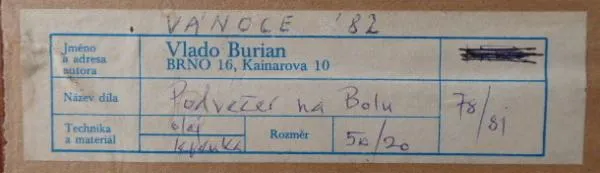 VÁNOCE '82
Jméno
a adresa
autora
Vlado Burian
BRNO 16, Kainarova 10
Název díla
Podvečer na Bolu
78/81
Technika
a materiál
olej
Rozměr
50/20